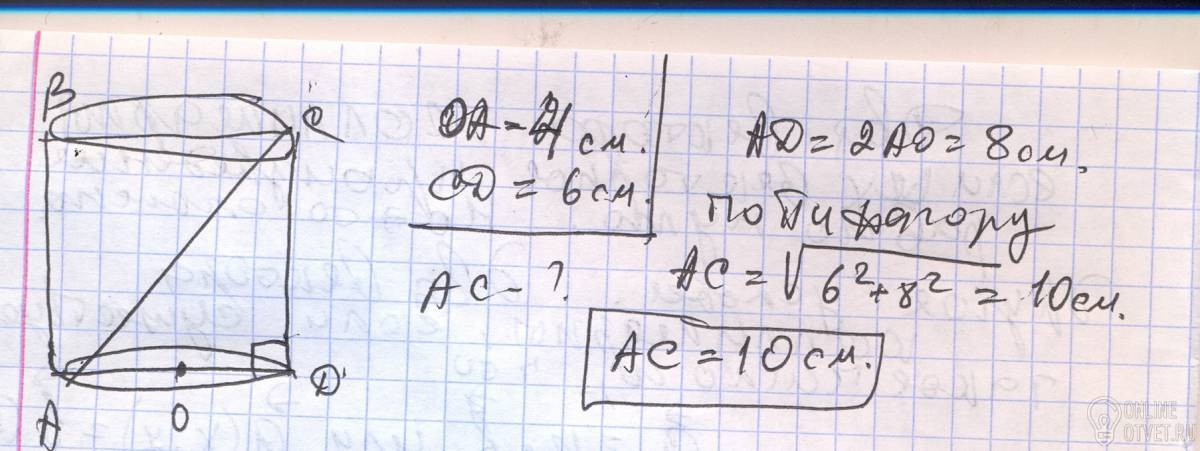 B
C
A
O
D
OA = 4 см.
CD = 6 см.
AC - ?
AD = 2AO = 8 см.
по Пифагору
AC = √6²+8² = 10 см.
AC = 10 см.
ONLINE
OTVET.RU